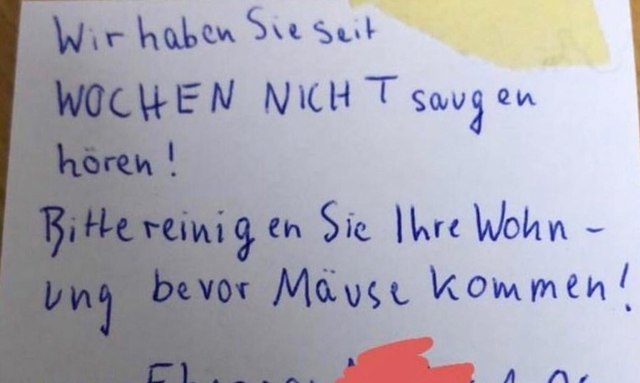 Wir haben Sie seit
WOCHEN NICHT saugen
hören!
Bitte reinigen Sie Ihre Wohn-
ung bevor Mäuse kommen!